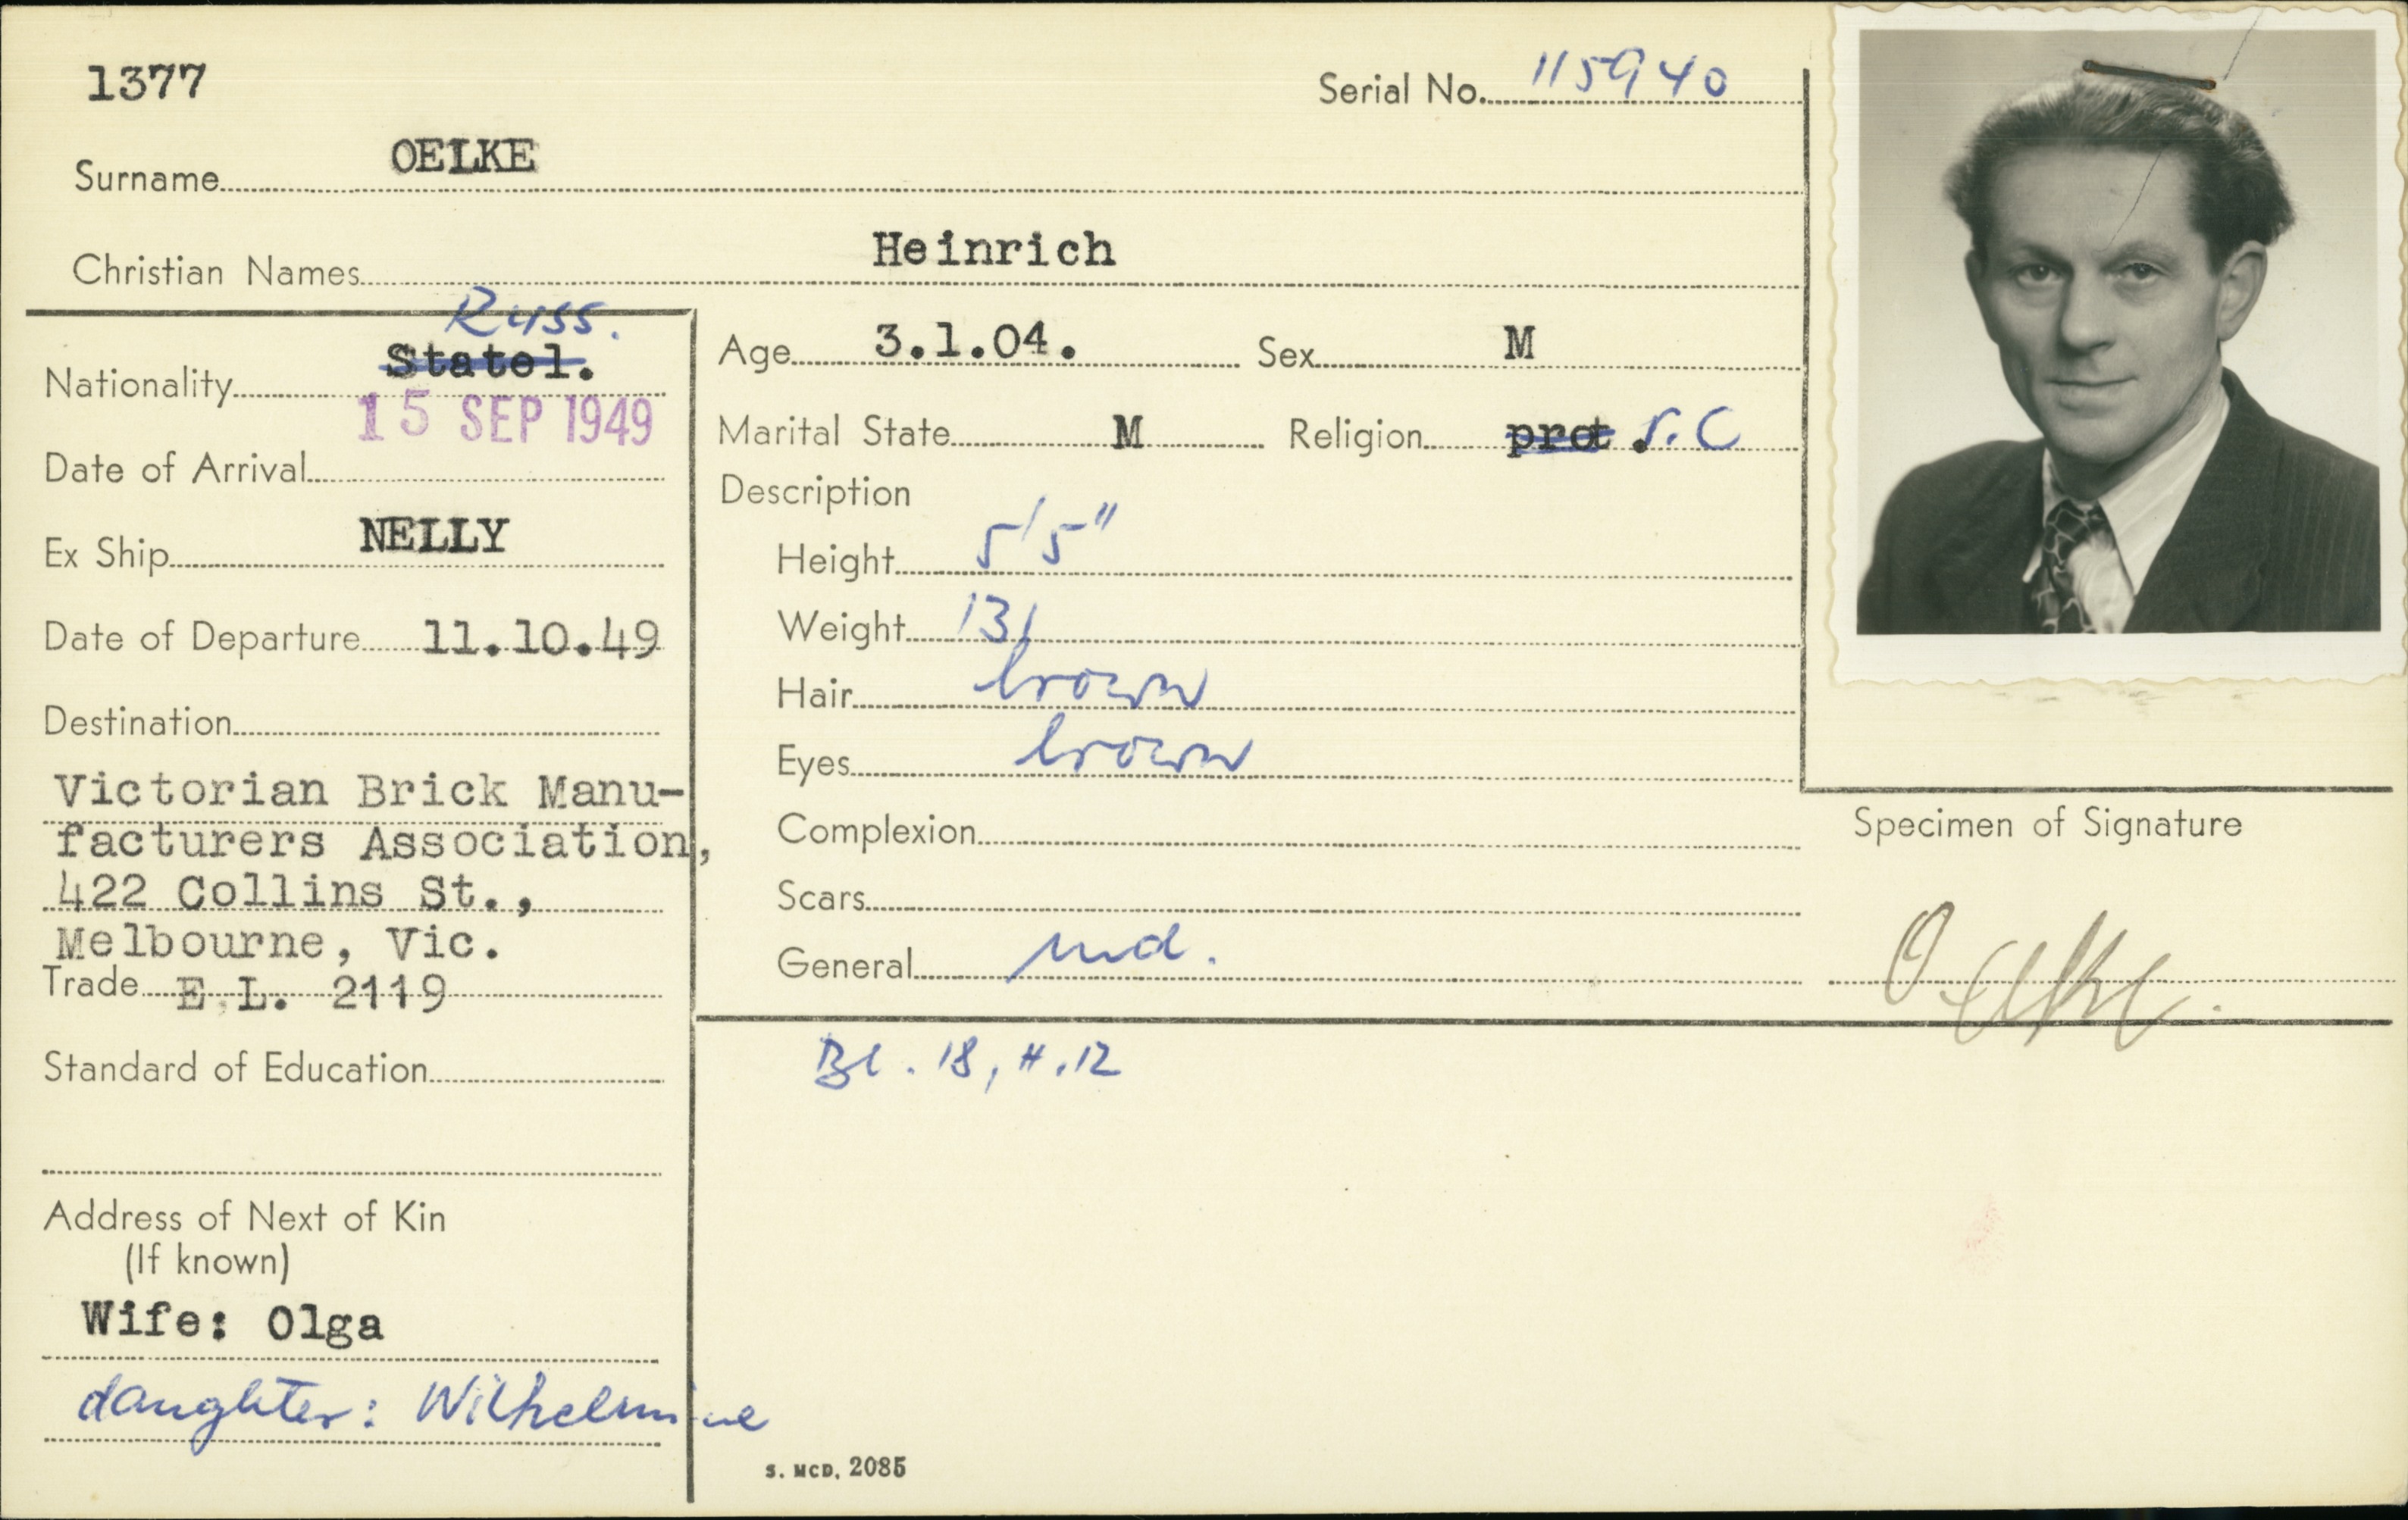 1377
Serial No. 115940
Surname OELKE
Christian Names Heinrich
Russ.
Nationality Statel.
15 SEP 1949
Date of Arrival
Ex Ship NELLY
Date of Departure 11.10.49
Destination
Victorian Brick Manu-
facturers Association,
422 Collins St.,
Melbourne, Vic.
Trade E.L. 2119
Standard of Education
Address of Next of Kin
(If known)
Wife: Olga
daughter: Wilhelmine
Age 3.1.04. Sex M
Marital State M Religion prot. r.C
Description
Height 5'5"
Weight 131
Hair brown
Eyes brown
Complexion
Scars
General md.
Bl. 18, H.12
S. MCD. 2085
Specimen of Signature
Oelke.